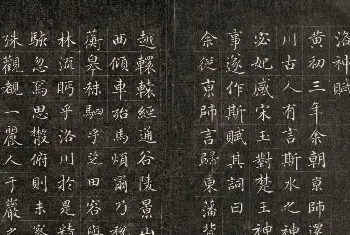 洛神賦
黃初三年余朝京師還
川古人有言斯水之神
宓妃感宋玉對楚王神
事遂作斯賦其詞曰
余從京師言歸東藩背
越轘轅經通谷陵景山
西傾車殆馬煩爾乃稅
蘅皋秣駟乎芝田容與
林流眄乎洛川於是精
駭忽焉思散俯則未察
殊觀覩一麗人于巖之